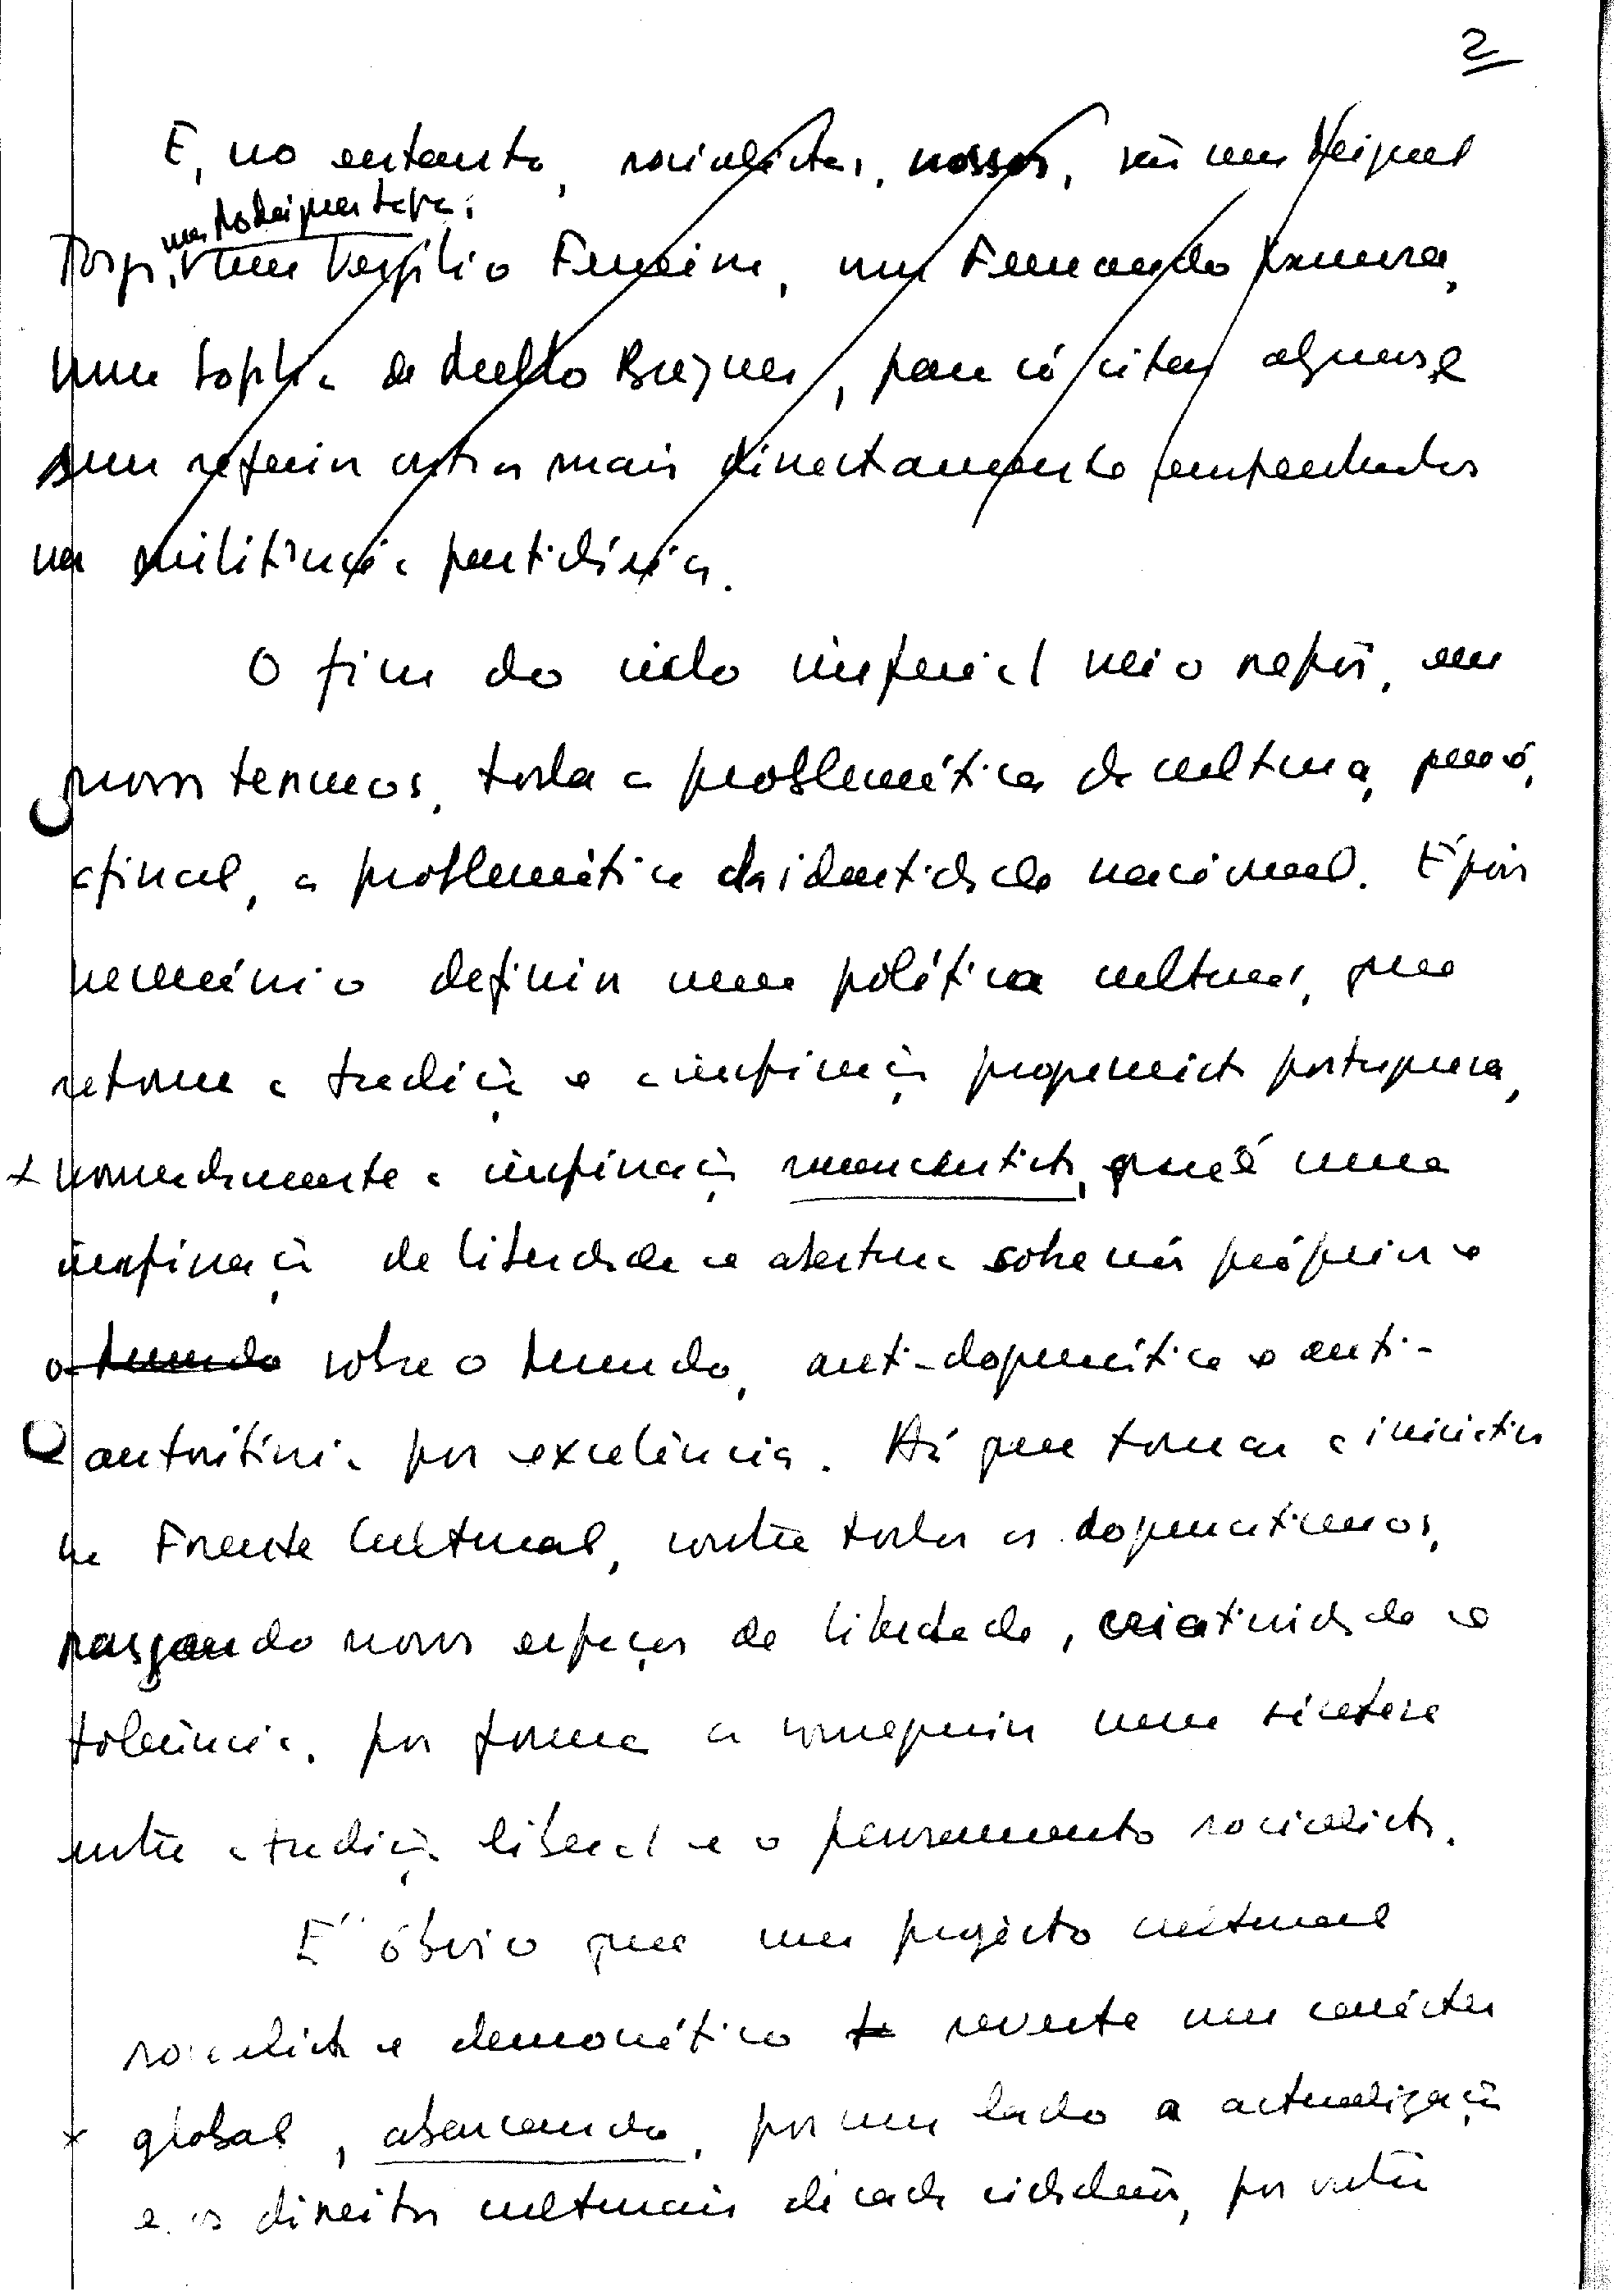 2
E, no entanto, socialistas, nossos, são um Miguel
um Rodrigues Lapa,
Torga, um Vergílio Ferreira, um Fernando Namora,
uma Sophia de Mello Breyner, para só citar alguns e
sem referir outros mais directamente empenhados
na militância partidária.
O fim do ciclo imperial veio repôr, em
novos termos, toda a problemática da cultura, que é,
afinal, a problemática da identidade nacional. É pois
necessário definir uma política cultural, que
retome a tradição e a inspiração progressista portuguesa,
nomeadamente a inspiração que é uma
inspiração de liberdade e abertura sobre nós próprios e
o mundo sobre o mundo, anti-dogmática e anti-
autoritária por excelência. Há que tomar a iniciativa
na Frente Cultural, contra todos os dogmatismos,
rasgando novos espaços de liberdade, criatividade e
tolerância, por forma a conseguir uma síntese
entre a tradição liberal e o pensamento socialista.
É óbvio que um projecto cultural
socialista e democrático reveste um carácter
global, abarcando, por um lado a actualização
e os direitos culturais de cada cidadão, por outro